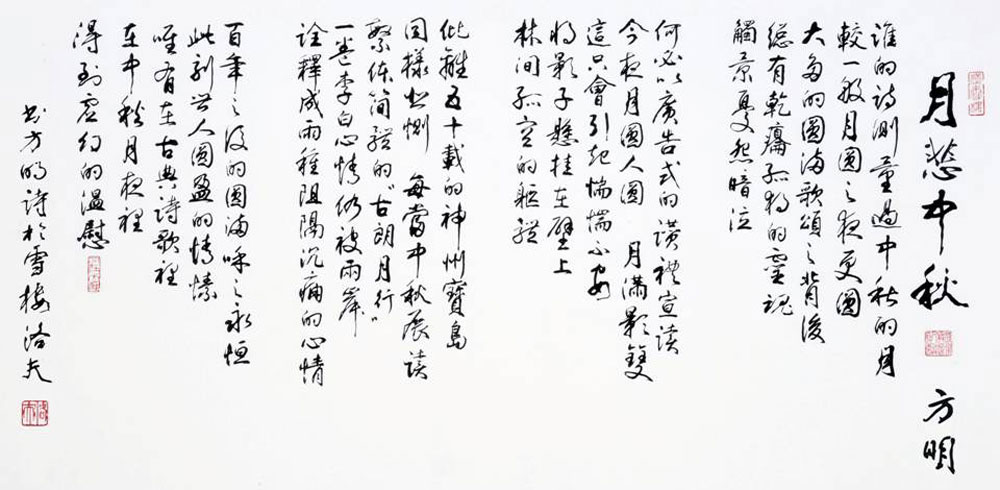 月悲中秋 方明
誰的詩測量過中秋的月
較一般月圓之夜更圓
大多的圓滿歌頌之背後
總有乾癟孤獨的靈魂
觸景憂怨暗泣
何必以廣告式的讚禮宣讀
今夜月圓人圓 月滿影雙
這只會引起惴惴不安
將影子懸挂在壁上
林間孤空的軀體
仳離五十載的神州寶島
同樣 惻 每當中秋展讀
繁体简體的“古朗月行”
一卷李白心情仍被兩岸
詮釋成兩種阻隔沉痛的心情
百年之後的圓滿呼之永恒
此刻世人圓盈的情愫
唯有在古典詩歌裡
在中秋月夜裡
得到虛幻的溫慰
书方明詩於雪樓洛夫